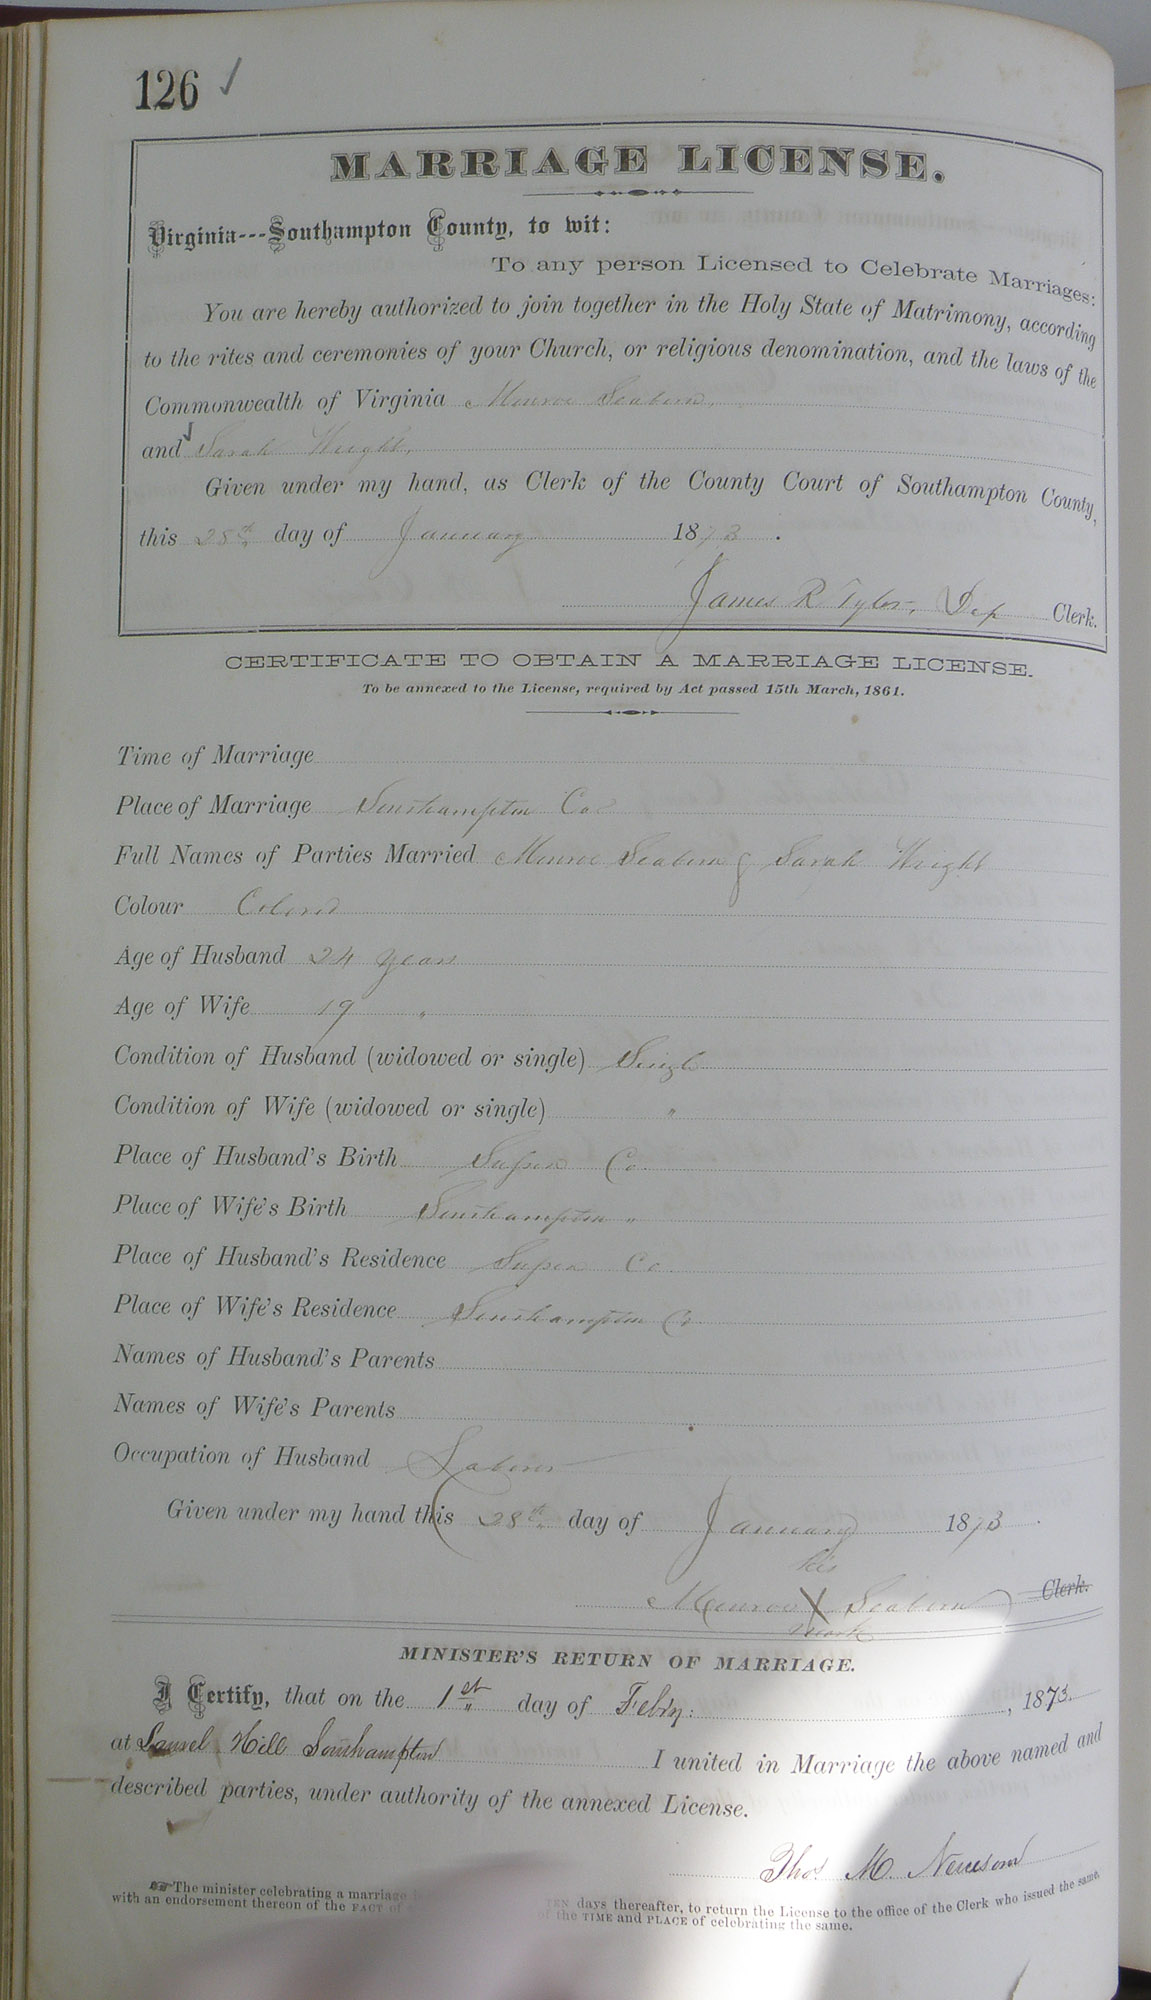 126 ✓
MARRIAGE LICENSE.
Virginia---Southampton County, to wit:
To any person Licensed to Celebrate Marriages:
You are hereby authorized to join together in the Holy State of Matrimony, according
to the rites and ceremonies of your Church, or religious denomination, and the laws of the
Commonwealth of Virginia Monroe Seaborn,
and ✓ Sarah Wright,
Given under my hand, as Clerk of the County Court of Southampton County,
this 28th day of January 1873.
James R Tyler, Dep Clerk.
CERTIFICATE TO OBTAIN A MARRIAGE LICENSE.
To be annexed to the License, required by Act passed 15th March, 1861.
Time of Marriage
Place of Marriage Southampton Co
Full Names of Parties Married Monroe Seaborn & Sarah Wright
Colour Colored
Age of Husband 24 years
Age of Wife 19 "
Condition of Husband (widowed or single) Single
Condition of Wife (widowed or single) "
Place of Husband's Birth Sussex Co.
Place of Wife's Birth Southampton "
Place of Husband's Residence Sussex Co
Place of Wife's Residence Southampton Co
Names of Husband's Parents
Names of Wife's Parents
Occupation of Husband Laborer
Given under my hand this 28th day of January 1873.
his
Monroe X Seaborn Clerk.
mark
MINISTER'S RETURN OF MARRIAGE.
I Certify, that on the 1st day of Feb'ry: , 1873.
at Laurel Hill Southampton I united in Marriage the above named and
described parties, under authority of the annexed License.
Thos M. Newsom
The minister celebrating a marriage TEN days thereafter, to return the License to the office of the Clerk who issued the same,
with an endorsement thereon of the FACT of the TIME and PLACE of celebrating the same.